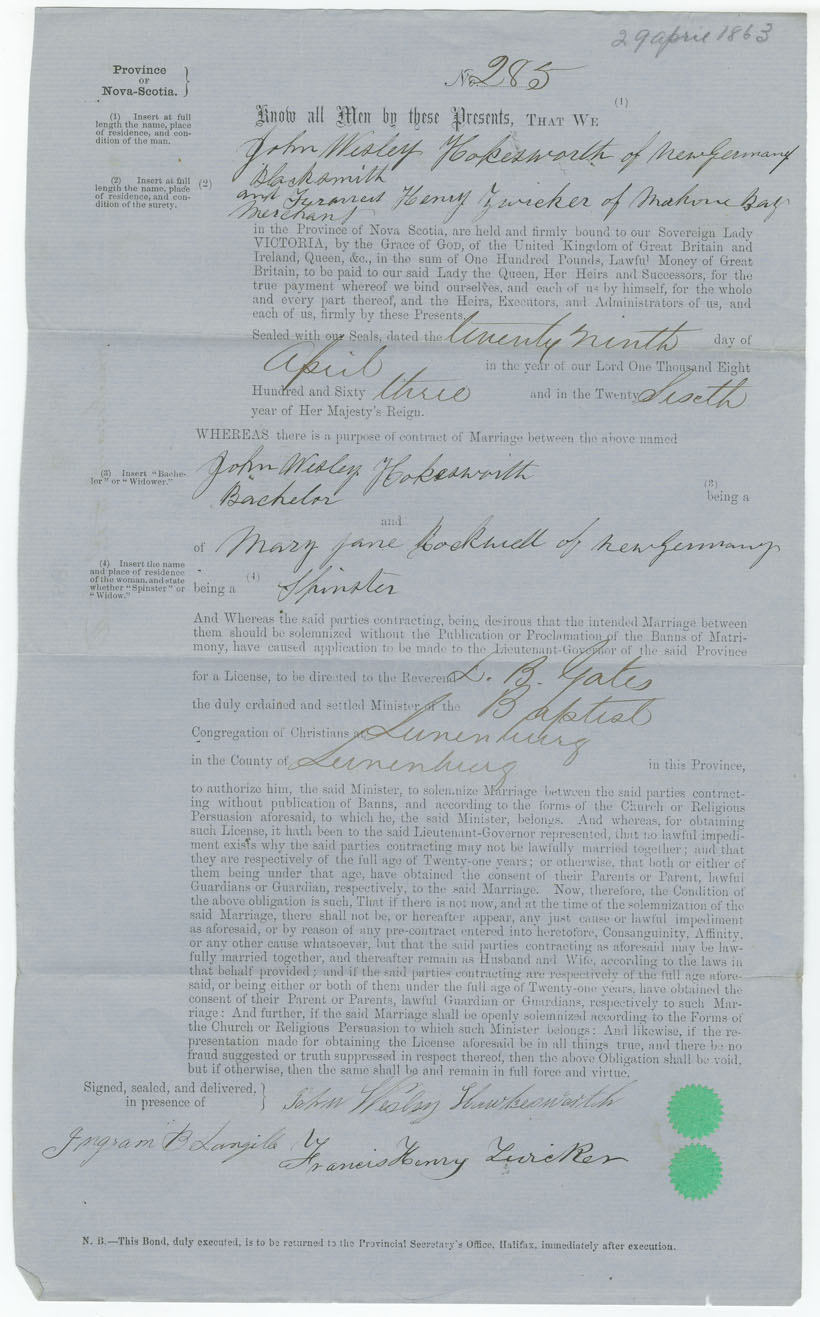 29 april 1863
Province
OF
Nova-Scotia. }
No. 285
(1)
Know all Men by these Presents, THAT WE
(1) Insert at full
length the name, place
of residence, and con-
dition of the man.
John Wesley Hokesworth of new Germany
Blacksmith
(2) Insert at full
length the name, place
of residence, and con-
dition of the surety.
(2)
and Francis Henry Zwicker of Mahone Bay
Merchant
in the Province of Nova Scotia, are held and firmly bound to our Sovereign Lady
VICTORIA, by the Grace of GOD, of the United Kingdom of Great Britain and
Ireland, Queen, &c., in the sum of One Hundred Pounds, Lawful Money of Great
Britain, to be paid to our said Lady the Queen, Her Heirs and Successors, for the
true payment whereof we bind ourselves, and each of us by himself, for the whole
and every part thereof, and the Heirs, Executors, and Administrators of us, and
each of us, firmly by these Presents.
Sealed with our Seals, dated the twenty ninth day of
April in the year of our Lord One Thousand Eight
Hundred and Sixty three and in the Twenty Sixth
year of Her Majesty's Reign.
WHEREAS there is a purpose of contract of Marriage between the above named
(3) Insert "Bache-
lor" or "Widower."
John Wesley Hokesworth
(3)
Bachelor being a
and
of Mary Jane Rockwell of new Germany
(4) Insert the name
and place of residence
of the woman, and state
whether "Spinster" or
"Widow."
being a (4) Spinster
And Whereas the said parties contracting, being desirous that the intended Marriage between
them should be solemnized without the Publication or Proclamation of the Banns of Matri-
mony, have caused application to be made to the Lieutenant-Governor of the said Province
for a License, to be directed to the Reverend L. B. Gates
the duly ordained and settled Minister of the Baptist
Congregation of Christians at Lunenburg
in the County of Lunenburg in this Province,
to authorize him, the said Minister, to solemnize Marriage between the said parties contract-
ing without publication of Banns, and according to the forms of the Church or Religious
Persuasion aforesaid, to which he, the said Minister, belongs. And whereas, for obtaining
such License, it hath been to the said Lieutenant-Governor represented, that no lawful impedi-
ment exists why the said parties contracting may not be lawfully married together; and that
they are respectively of the full age of Twenty-one years; or otherwise, that both or either of
them being under that age, have obtained the consent of their Parents or Parent, lawful
Guardians or Guardian, respectively, to the said Marriage. Now, therefore, the Condition of
the above obligation is such, That if there is not now, and at the time of the solemnization of the
said Marriage, there shall not be, or hereafter appear, any just cause or lawful impediment
as aforesaid, or by reason of any pre-contract entered into heretofore, Consanguinity, Affinity,
or any other cause whatsoever, but that the said parties contracting as aforesaid may be law-
fully married together, and thereafter remain as Husband and Wife, according to the laws in
that behalf provided; and if the said parties contracting are respectively of the full age afore-
said, or being either or both of them under the full age of Twenty-one years, have obtained the
consent of their Parent or Parents, lawful Guardian or Guardians, respectively to such Mar-
riage: And further, if the said Marriage shall be openly solemnized according to the Forms of
the Church or Religious Persuasion to which such Minister belongs: And likewise, if the re-
presentation made for obtaining the License aforesaid be in all things true, and there be no
fraud suggested or truth suppressed in respect thereof, then the above Obligation shall be void,
but if otherwise, then the same shall be and remain in full force and virtue.
Signed, sealed, and delivered,
in presence of }
John Wesley Hawkesworth
Ingram B Langille
Francis Henry Zwicker
N. B.—This Bond, duly executed, is to be returned to the Provincial Secretary's Office, Halifax, immediately after execution.